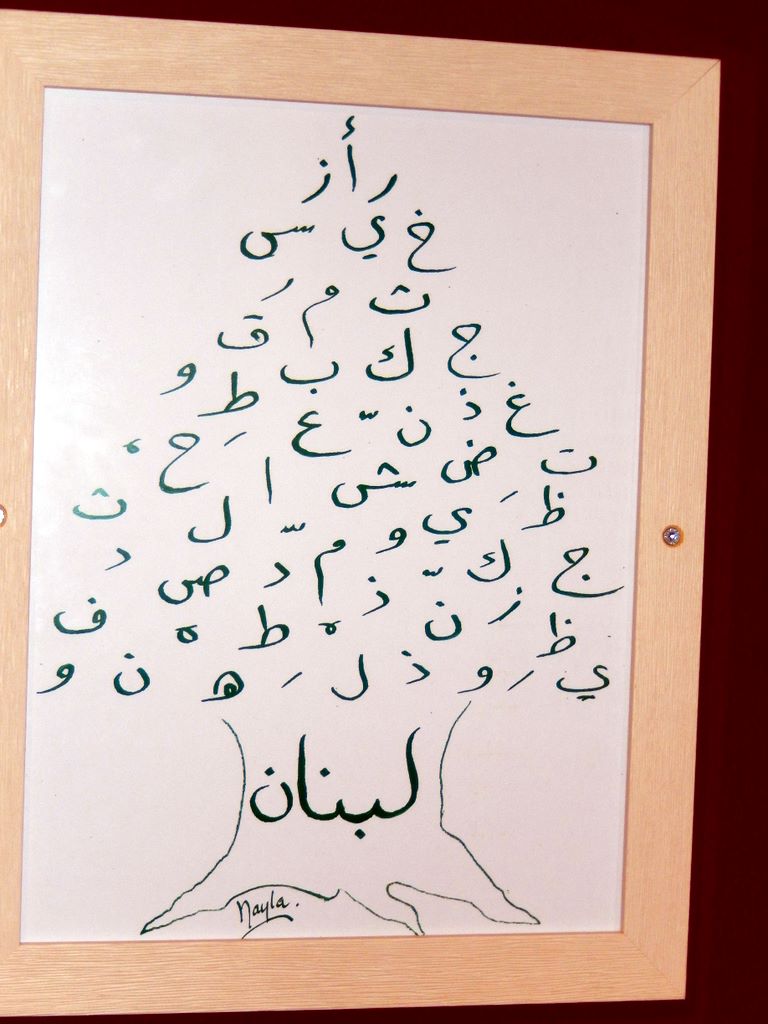 ر أ ز
خ ي س
ث م ق
ج ك ب و
غ ذ ن ع ط
ت ض ش ا ح
ظ ي و ل ث
ج ك م د ص د
ظ ن ذ ط ف
ي و ذ ل ه ن و
لبنان
Nayla.